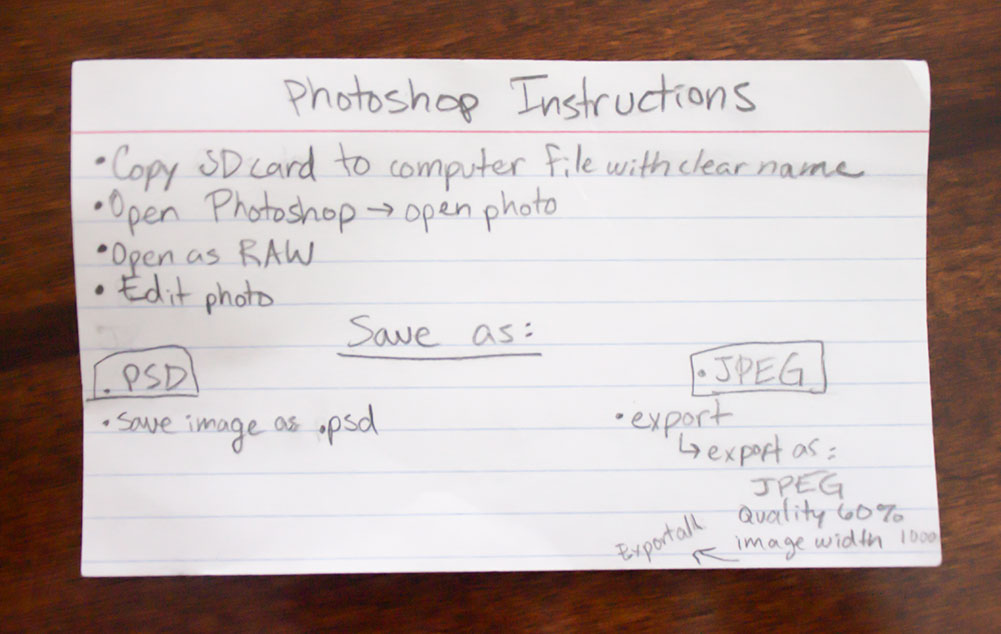 Photoshop Instructions
• Copy SD card to computer file with clear name
• Open Photoshop → open photo
• Open as RAW
• Edit photo
Save as:
.PSD
• save image as .psd
.JPEG
• export
↳ export as:
JPEG
Quality 60%
image width 1000
Export all ←